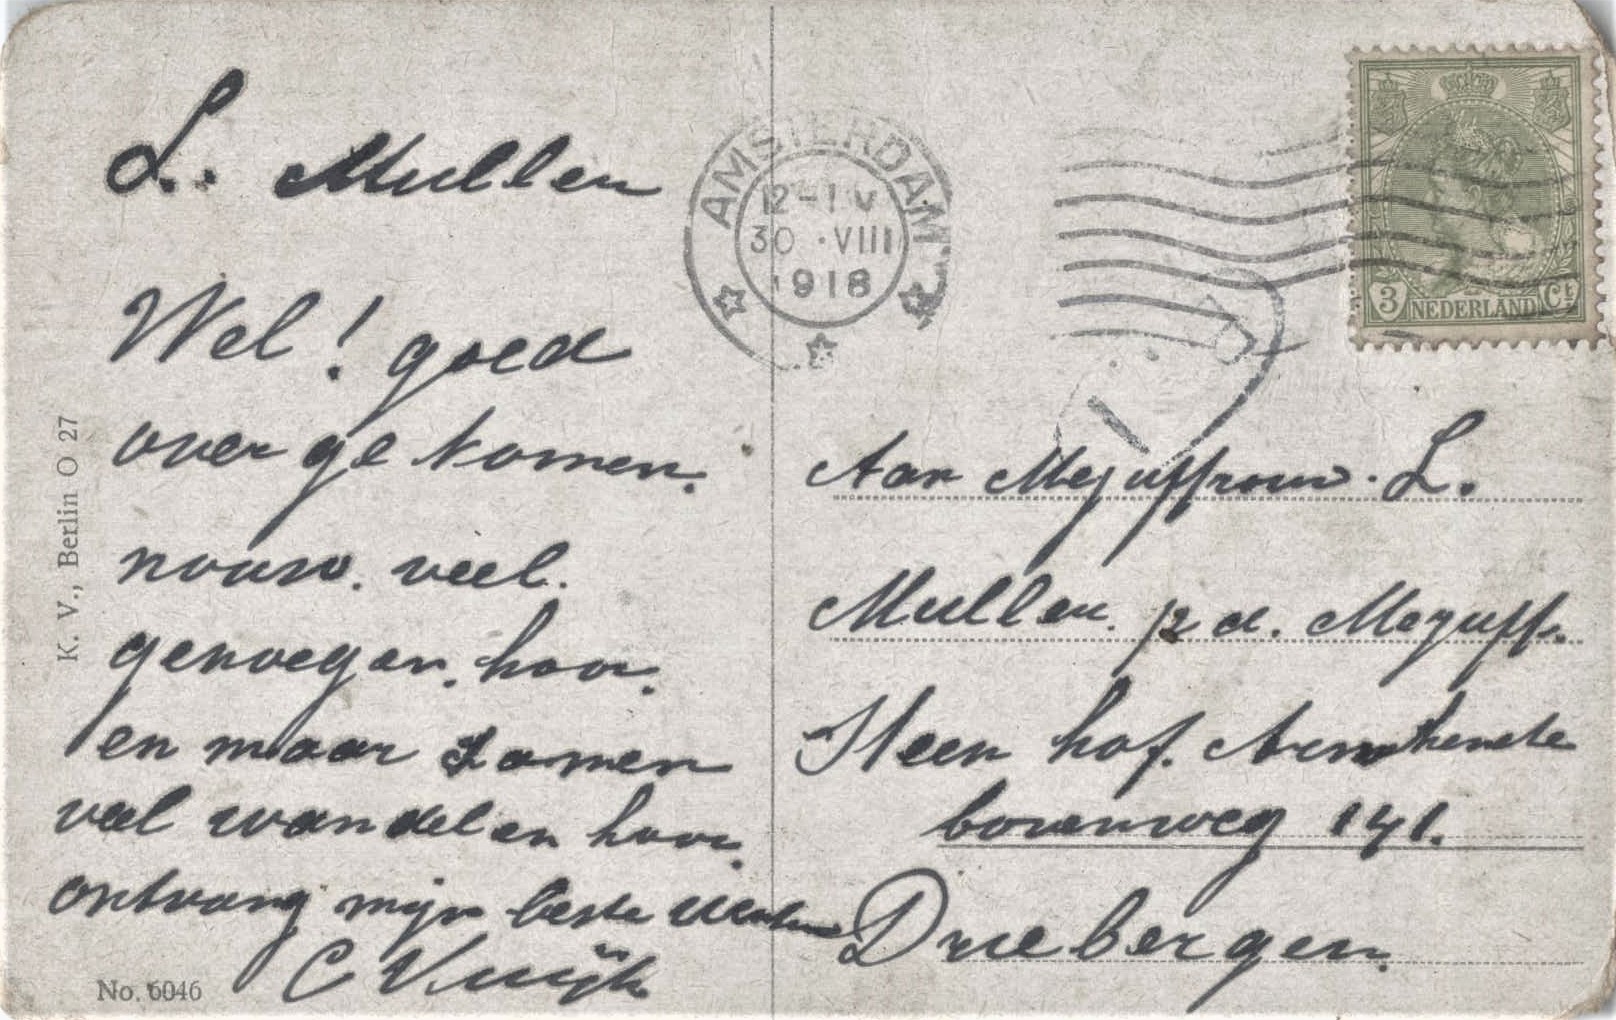 L. Mullen
Wel! goed
over ge komen.
nouw. veel.
genoegen. hoor.
en maar zamen
veel wandelen hoor.
ontvang mijn beste
C Vuijk
K. V., Berlin O 27
No. 6046
AMSTERDAM
12-1 V
30 VIII
1918
3 NEDERLAND Ct
Aan Mejuffrouw. L.
Mullen. p d. Mejuff.
Steen hof. Arnhemsche
bovenweg 141.
Driebergen.